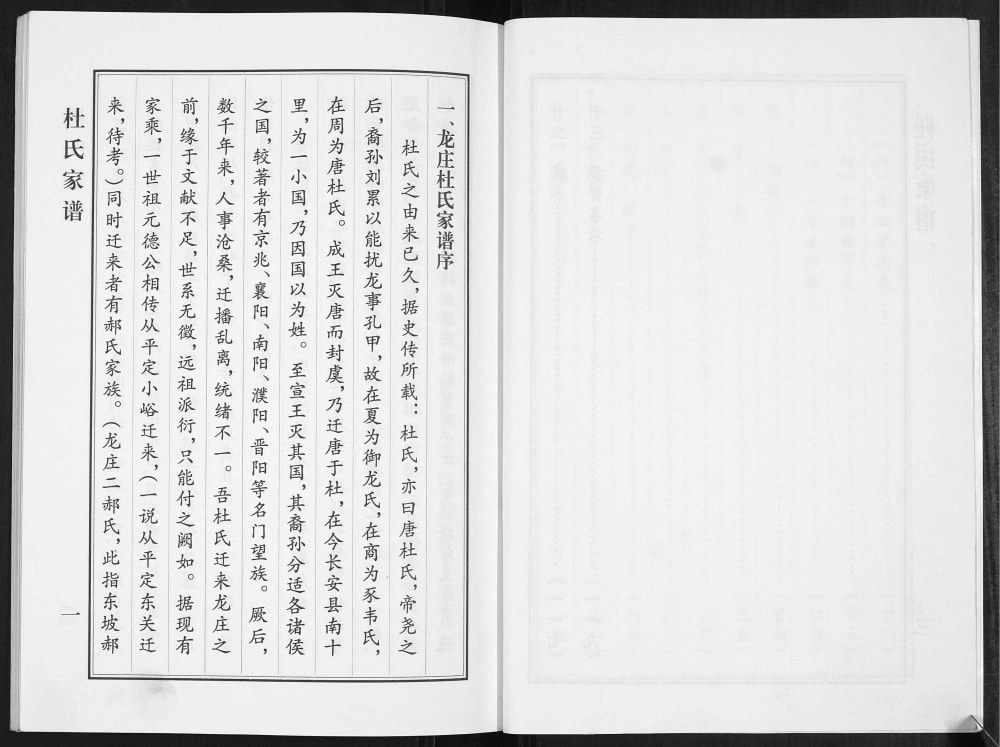 一、龙庄杜氏家谱序
杜氏之由来已久，据史传所载：杜氏，亦曰唐杜氏，帝尧之
后，裔孙刘累以能扰龙事孔甲，故在夏为御龙氏，在商为豕韦氏，
在周为唐杜氏。成王灭唐而封虞，乃迁唐于杜，在今长安县南十
里，为一小国，乃因国以为姓。至宣王灭其国，其裔孙分适各诸侯
之国，较著者有京兆、襄阳、南阳、濮阳、晋阳等名门望族。厥后，
数千年来，人事沧桑，迁播乱离，统绪不一。吾杜氏迁来龙庄之
前，缘于文献不足，世系无徵，远祖派衍，只能付之阙如。据现有
家乘，一世祖元德公相传从平定小峪迁来，（一说从平定东关迁
来，待考。）同时迁来者有郝氏家族。（龙庄二郝氏，此指东坡郝
杜氏家谱
一